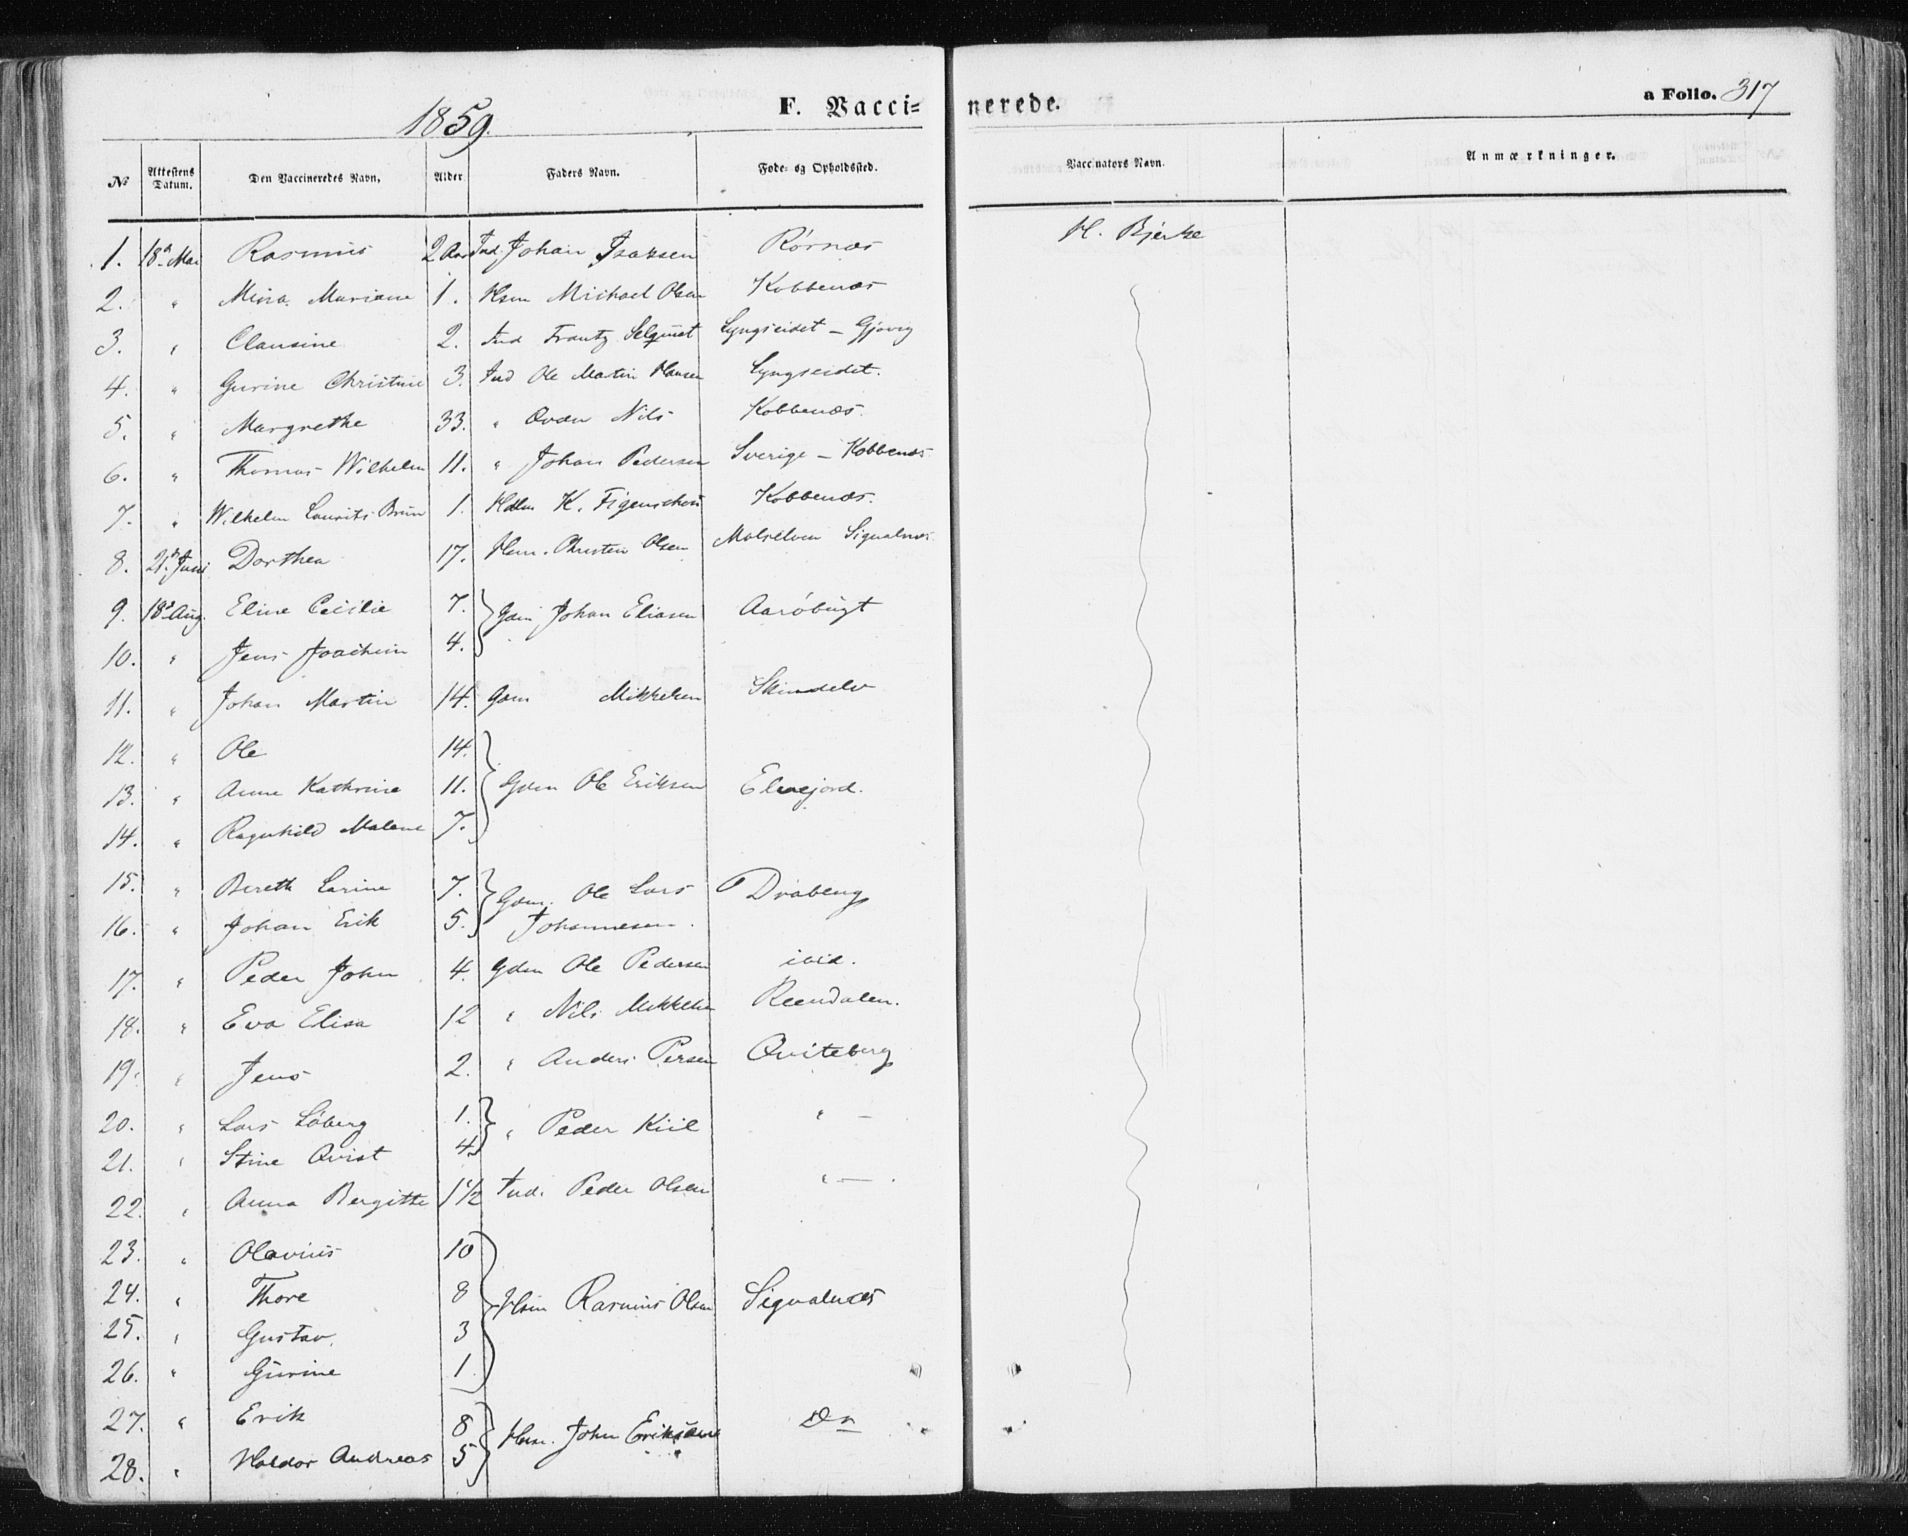 1859.
F. Vacci- nerede.
a Folio. 317
No Attestens Datum. Den Vaccineredes Navn, Alder Faders Navn. Føde- og Opholdssted. Vaccinators Navn. Anmærkninger.
1. 18d Mai Rasmus 2 Aar Ind. Johan Isaksen Rørnæs H. Bjerke
2. " Mina Mariane 1. Hsm Michael Olsen Kobbenæs
3. " Clausine 2. Ind Frantz Selquist Lyngseidet - Gjøvig
4. " Gurine Christine 3. Ind Ole Martin Hansen Lyngseidet.
5. " Margrethe 33. " Nils Kobbenæs.
6. " Thomas Wilhelm 11. " Johan Pedersen Sverige - Kobbenæs
7. " Wilhelm Laurits Brun 1. K. Figenschou Kobbenæs.
8. 21d Juni Dorthea 17. Hsm. Christen Olsen Malselven Signalnæs
9. 18d Aug. Eline Cecilie 7. Gdm Johan Eliasen Aarøbugt
10. " Jens Joachim 4.
11. " Johan Martin 14. Gdm Mikkelsen Skindelv
12. " Ole 14.
13. " Anne Kathrine 11. Gdm Ole Eriksen Elvejord.
14. " Ragnhild Malene 7.
15. " Bereth Larine 7. Gdm. Ole Lars Draberg
16. " Johan Erik 5. Johannesen.
17. " Peder John 4. Gdm Ole Pedersen ibid.
18. " Eva Elisa 12 " Nils Mikkelsen Reendalen.
19. " Jens 2. " Anders Persen Qviteberg
20. " Lars Løberg 1. " Peder Kiil " -
21. " Stine Qvist 4.
22. " Anna Bergitte 1 1/2 Ind. Peder Olsen " -.
23. " Olavius 10
24. " Thore 8 Hsm Rasmus Olsen Signalnæs
25. " Gustav. 3
26. " Gurine 1
27. " Erik 8 Hsm. John Eriksen Do
28. " Haldor Andreas 5